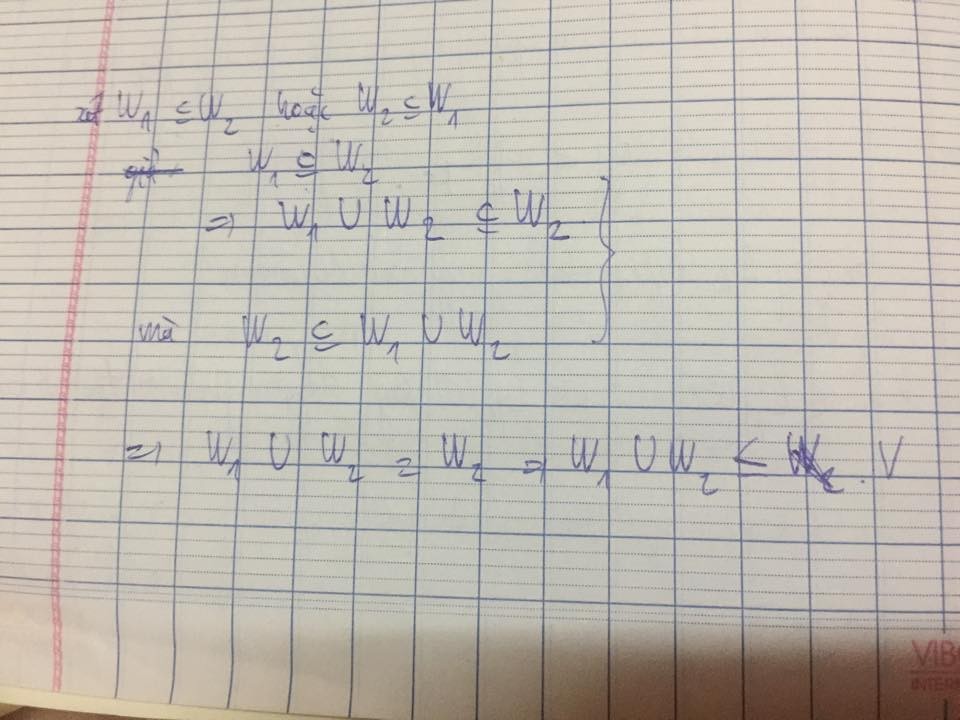 xét W₁ ⊆ W₂ hoặc W₂ ⊆ W₁
W₁ ⊆ W₂
⇒ W₁ ∪ W₂ ⊆ W₂
mà W₂ ⊆ W₁ ∪ W₂
⇒ W₁ ∪ W₂ = W₂ ⇒ W₁ ∪ W₂ < V
VIB
INTER